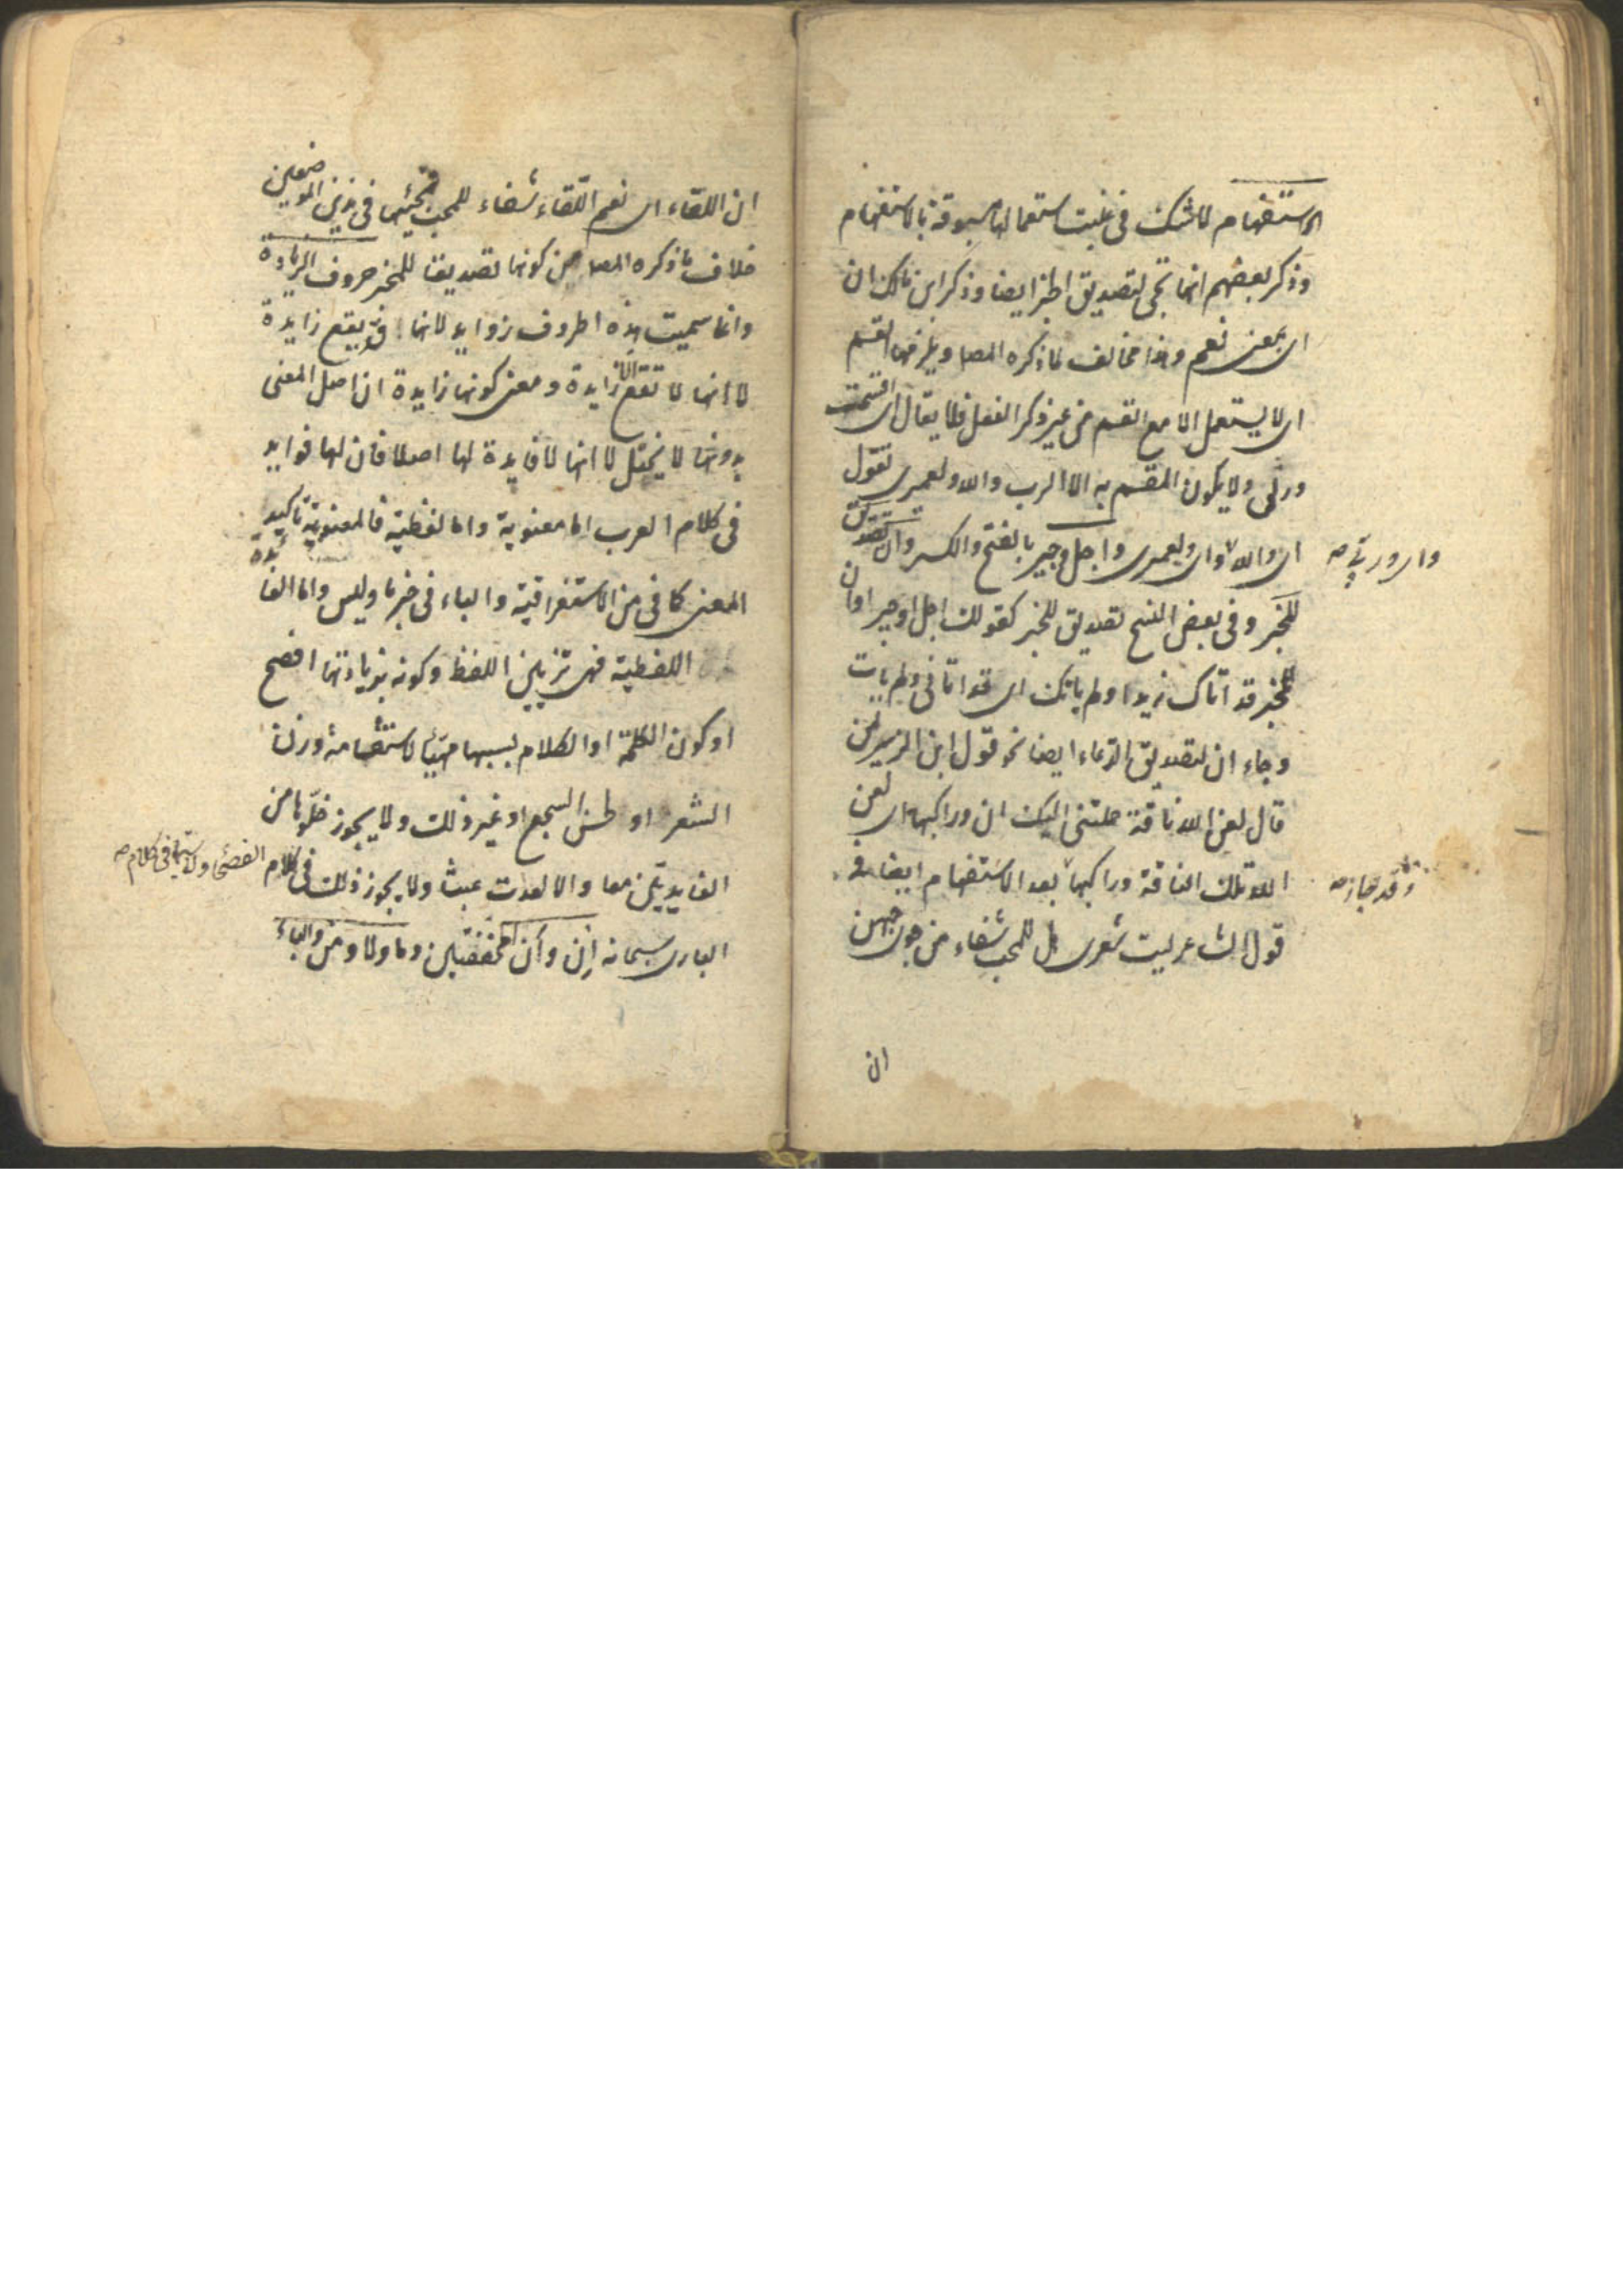 الاستفهام لا شك في غلبت استعمالها مسبوقة بالاستفهام
وذكر بعضهم انها تجئ لتصديق الخبر ايضا وذكر ابن مالك ان
اى بمعنى نعم وهذا مخالف لما ذكره المصا ويلزمها القسم
اى لا يستعمل الا مع القسم من غير ذكر الفعل فلا يقال اى اقسمت
وربى ولا يكون المقسم به الا الرب والله ولعمرى تقول
اى والله واى ولعمرى واجل وجير بالفتح والكسر وان تصديق
واى وربي صح
للمخبر وفى بعض النسخ تصديق للخبر كقولك اجل او جير او ان
للمخبر قد اتاك زيد او لم ياتك اى قد اتانى ولم يات
وجاء ان لتصديق الدعاء ايضا نحو قول ابن الزبير لمن
قال لعن الله ناقة حملتنى اليك ان وراكبها اى لعن
الله تلك الناقة وراكبها بعد الاستفهام ايضا فى
وقد جاء صح
قول الشاعر ليت شعرى هل للمحب شفاء من جوى حبهن
ان
ان اللقاء اى نعم اللقاء شفاء للمحب فمجيئها فى هذين الموضعين
خلاف ما ذكره المصا من كونها تصديقا للمخبر حروف الزيادة
وانما سميت هذه الحروف زوايد لانها قد يقع زايدة
لا انها لا تقع الا زايدة ومعنى كونها زايدة ان اصل المعنى
بدونها لا يختل لا انها لا فايدة لها اصلا فان لها فوايد
فى كلام العرب اما معنوية واما لفظية فالمعنوية تاكيد
المعنى كما فى من الاستغراقية والباء فى خبر ما وليس واما الفايدة
اللفظية فهى تزيين اللفظ وكونه بزيادتها افصح
او كون الكلمة او الكلام بسببها مهيّأ لاستقامة وزن
الشعر او لحسن السجع او غير ذلك ولا يجوز خلوّها من
الفايدتين معا والا لعدت عبثا ولا يجوز ذلك فى كلام
الفصحا ولا سيما فى كلام صح
البارى سبحانه اِن واَن مخففتين وما ولا ومن والباء